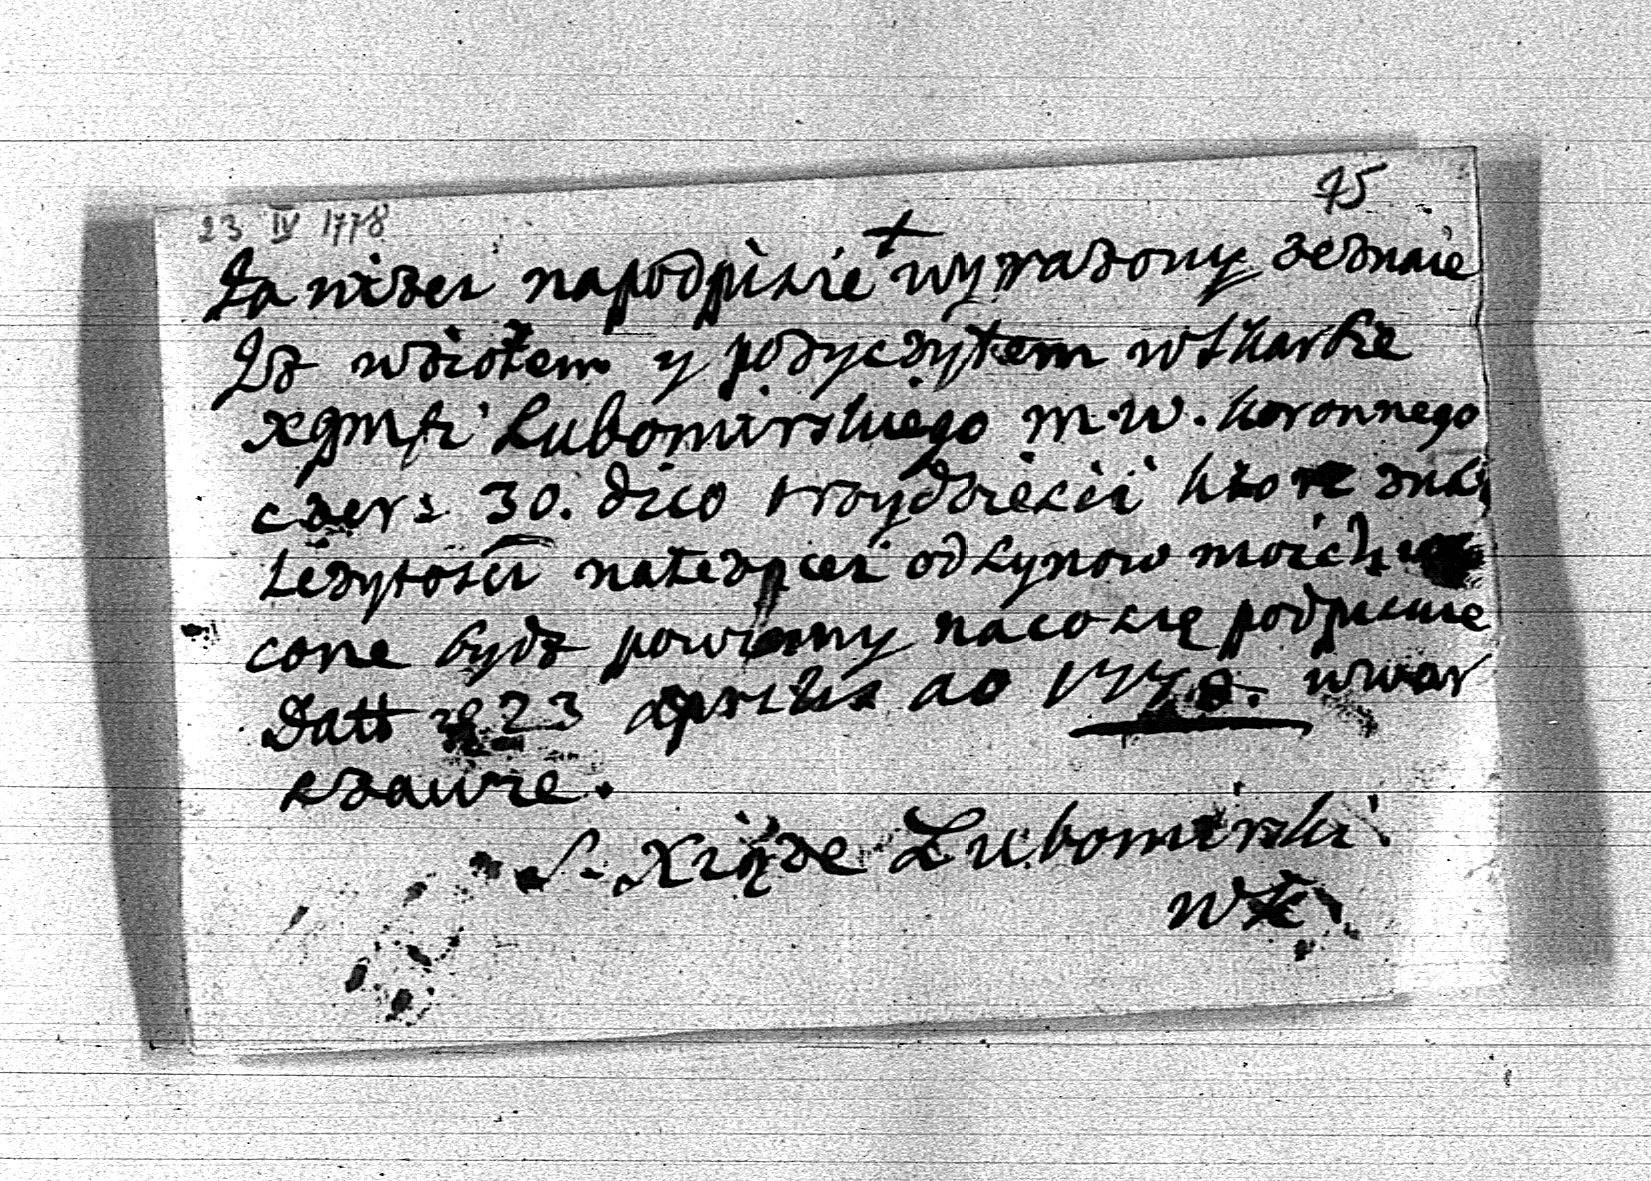 23 IV 1778
75
Ja niżei napodpisie + wyrazony zeznaie
Jż wziołem y pozyczyłem wskarbie
X gmści Lubomirskiego m. w. koronnego
czer: 30. dico trzydzieści ktore zna
lezytości należącei odsynow moich
cone bydz powinny nacosię podpisuie
Datt 23 aprilis ao 1778. wwar
szawie.
S. Xiąże Lubomirski